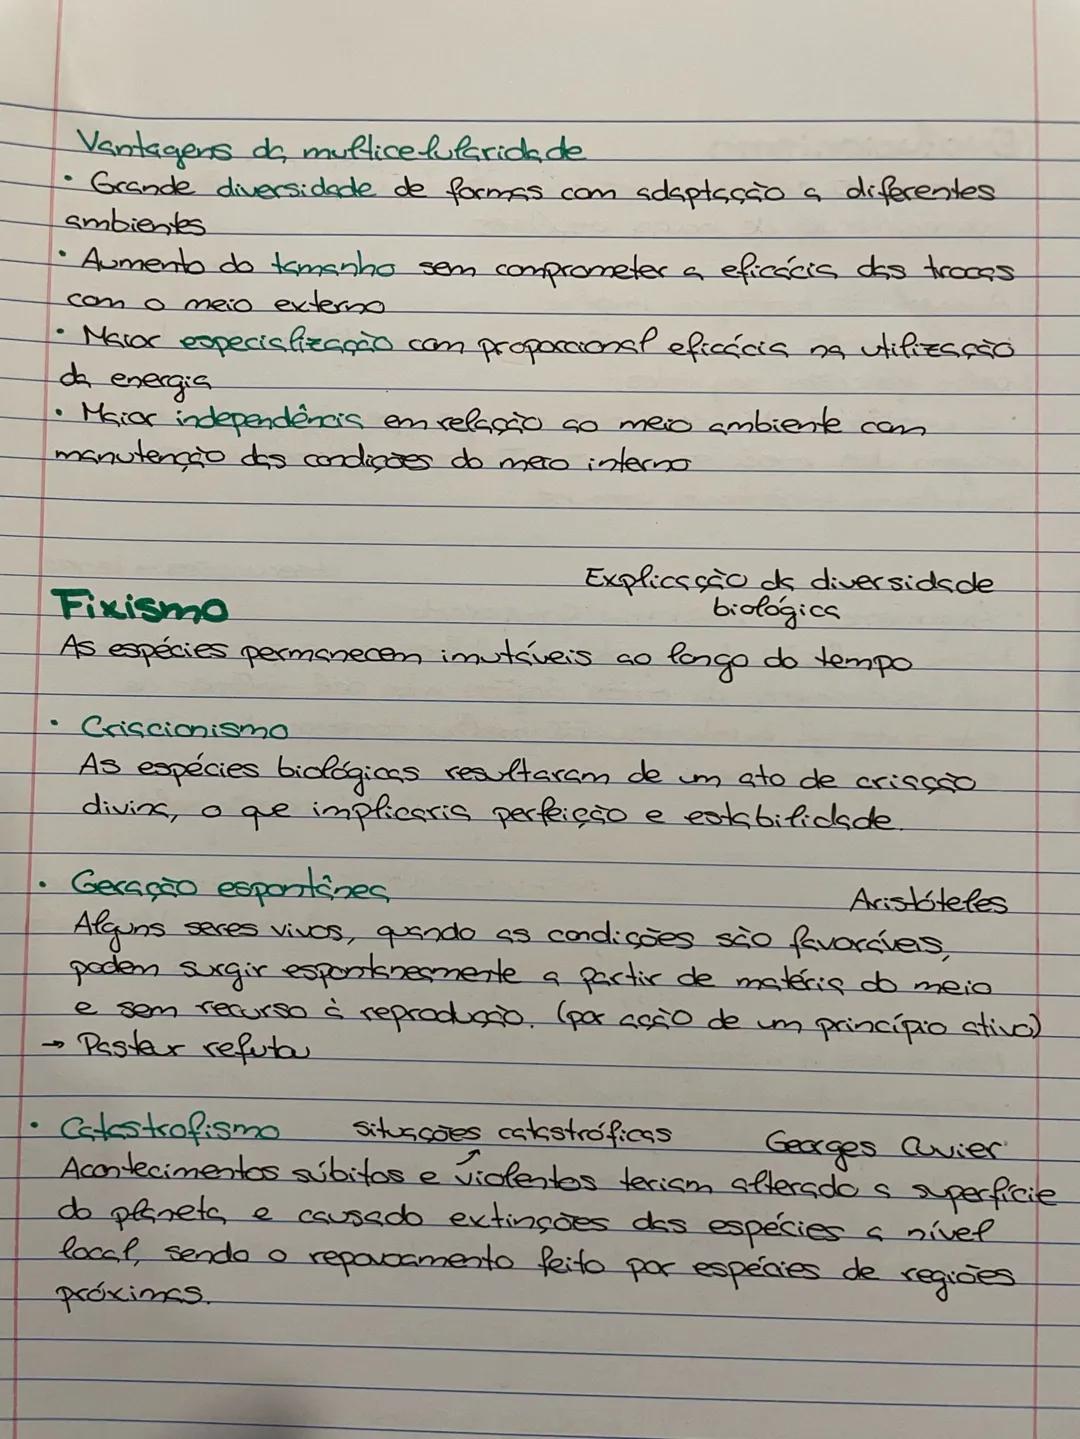 Vantagens da multicelularidade
• Grande diversidade de formas com adaptação a diferentes
ambientes
• Aumento do tamanho sem comprometer a eficácia das trocas
com o meio externo
• Maior especialização com proporcional eficácia na utilização
da energia
• Maior independência em relação ao meio ambiente com
manutenção das condições do meio interno
Explicação da diversidade
biológica
Fixismo
As espécies permanecem imutáveis ao longo do tempo
• Criacionismo
As espécies biológicas resultaram de um ato de criação
divina, o que implicaria perfeição e estabilidade.
• Geração espontânea
Aristóteles
Alguns seres vivos, quando as condições são favoráveis,
podem surgir espontaneamente a partir de matéria do meio
e sem recurso à reprodução. (por ação de um princípio ativo)
→ Pasteur refutou
• Catastrofismo situações catastróficas Georges Cuvier
Acontecimentos súbitos e violentos teriam alterado a superfície
do planeta e causado extinções das espécies a nível
local, sendo o repovoamento feito por espécies de regiões
próximas.